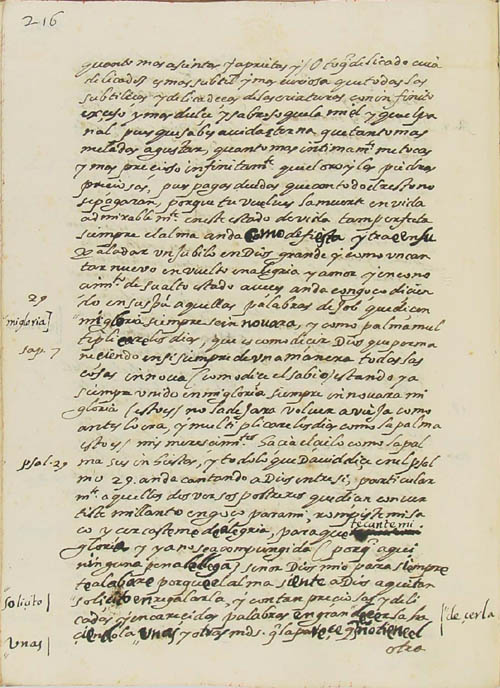 2-16
quanto mas asientas y aprietas y! O toq̃ delicado cuia
delicadeᶻ es mas subtil y mas curiosa que todas las
subtileças y delicadeças de las criaturas con infinito
exceso y mas dulce y sabroso que la miel y que el pa
nal. pues que sabes a vida eterna que tanto mas
me la das a gustar, quanto mas intimamᵗᵉ me tocas
y mas precioso infinitamᵗᵉ que el oro y las piedras
preciosas, pues pagas deudas que con todo el resto no
se pagaran, porque tu vuelves la muerte en vida
admirablemᵗᵉ. en este estado de vida tan perfecta
siempre el alma anda como de fiesta y trae en su
paladar un jubilo en Dios grande y como un can
tar nuevo en vuelto en alegria y amor, y en cono
cimᵗᵒ de su alto estado a veces anda con goço dicien
29
do en su spũ aquellas palabras de Job que dicen
mi gloria]
mi gloria siempre se in novara, y como palma mul
sap. 7
tiplicare los dias, que es como decir Dios que perma
neciendo en si siempre de una manera todas las
cosas innova (como dice el sabio) estando ya
siempre unido en mi gloria siempre innovara mi
gloria (esto es) no la dejara volver a vieja como
antes lo era, y multiplicare los dias como la palma
esto es mis merecimᵗᵒˢ hacia el cielo como la pal
psal. 29
ma sus in hiestas, y todo lo que David dice en el psal
mo 29. anda cantando a Dios entre si, particular
mᵗᵉ. aquellos dos versos postreros que dicen conver
tiste mi llanto en goço para mi, rompiste mi sa
co y cercasteme de alegria, para que
te cante mi
gloria y ya no sea compungida (porq̃ aqui
ninguna pena le llega) señor Dios mio para siempre
te alabare porque el alma siente a Dios aqui tan
solicito|
solicito en regalarla, y con tan preciosas y deli
cadas y encarecidas palabras engrandecerla ha
|de çerla
unas|
ciendola unas y otras mds. q̃ la parece q̃ no tiene el
otra